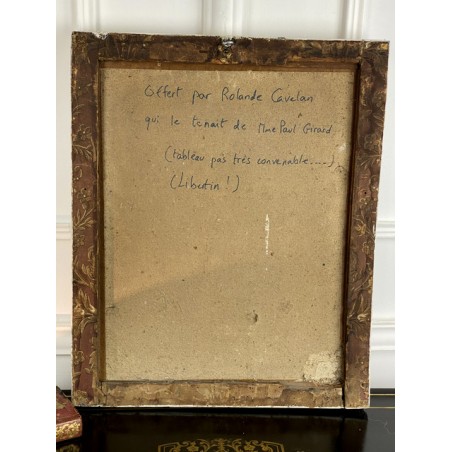 Offert par Rolande Cavelan
qui le tenait de Mme Paul Girard
(tableau pas très convenable.....)
(Libertin !)